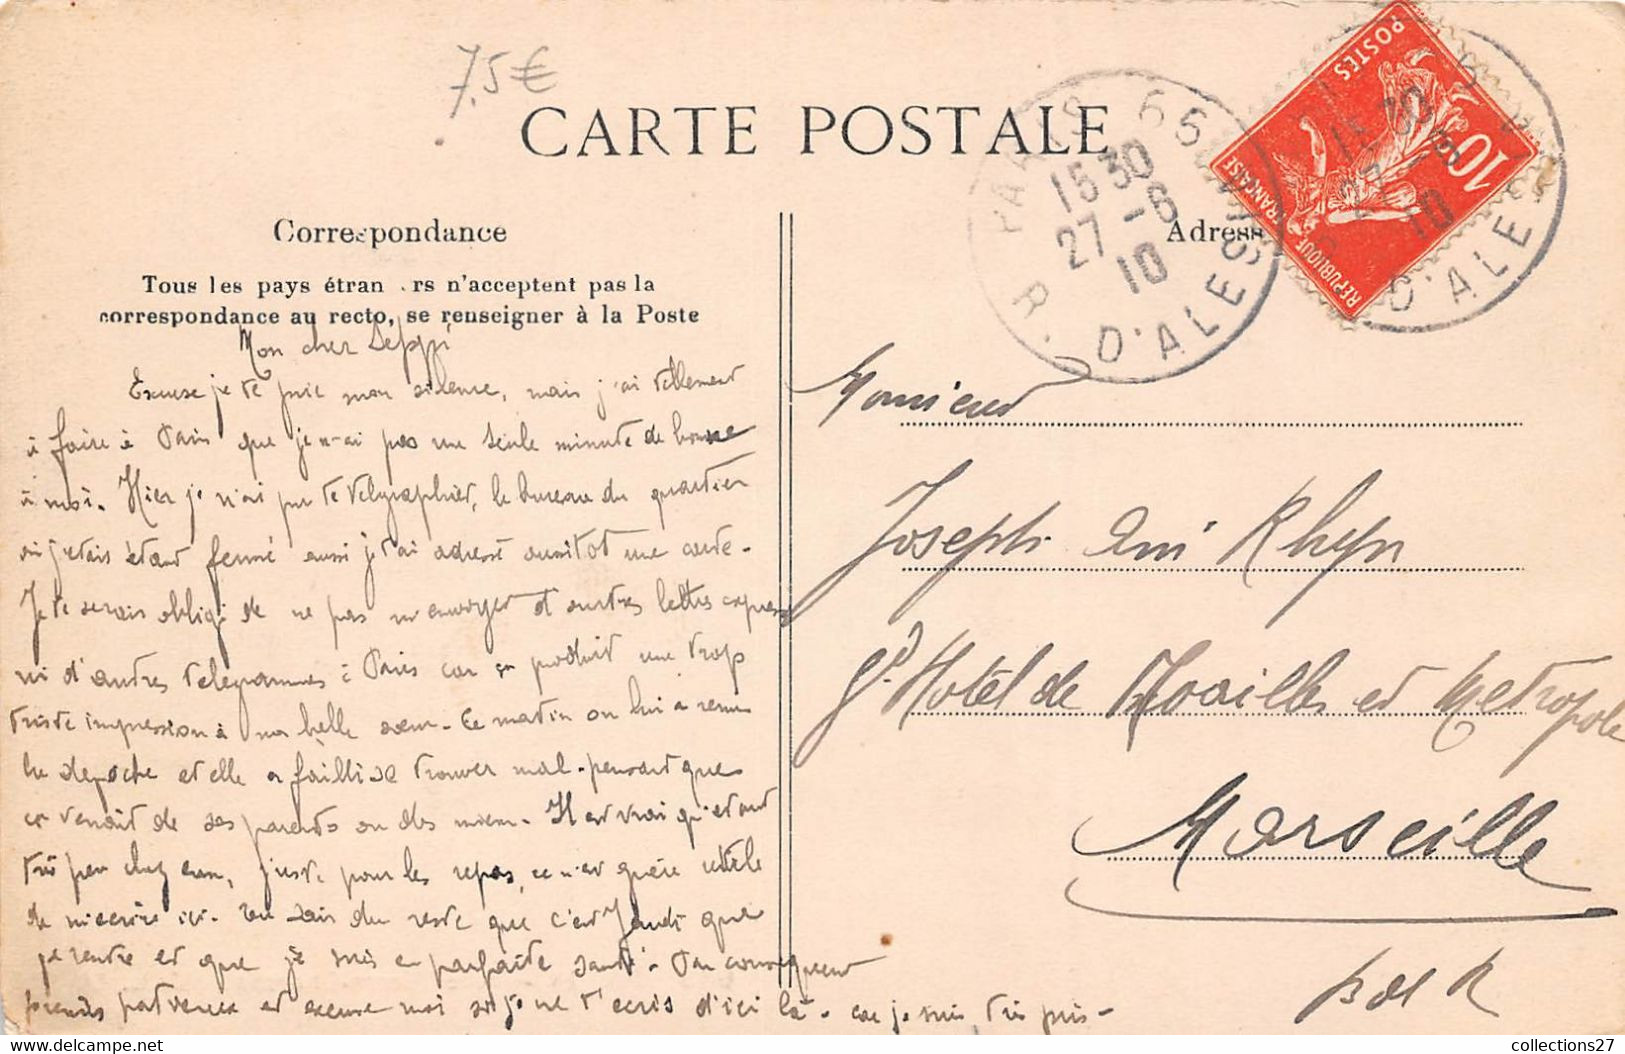 7,5€
CARTE POSTALE
PARIS 55
15 30
27 -6
10
R. D'ALESIA
POSTES
10
REPUBLIQUE FRANÇAISE
15 30
27 -6
10
D'ALESIA
Correspondance
Adresse
Tous les pays étrangers n'acceptent pas la
correspondance au recto, se renseigner à la Poste
Mon cher Seppi
Excuse je te prie mon silence, mais j'ai tellement
à faire à Paris que je n'ai pas une seule minute de bonne
à moi. Hier je n'ai pu te telegraphier, le bureau du quartier
où j'etais étant fermé aussi je t'ai adressé aussitot une carte.
Je te serais obligé de ne pas m'envoyer d'autres lettres express
ni d'autres telegrammes à Paris car ça produit une trop
triste impression à ma belle soeur. Ce matin on lui a remis
la depeche et elle a failli se trouver mal. pensant que
ça venait de ses parents ou des miens. Il est vrai qu'etant
très peu chez eux, juste pour les repas, ce n'est guère utile
de m'ecrire ici. Tu sais du reste que c'est Jeudi que
je rentre et que je suis en parfaite santé. Par consequent
prends patience et excuse moi si je ne t'ecris d'ici là. car je suis très pris.
Monsieur
Joseph Am Rhyn
Gd Hotel de Noailles et Metropole
Marseille
B de R
collections27